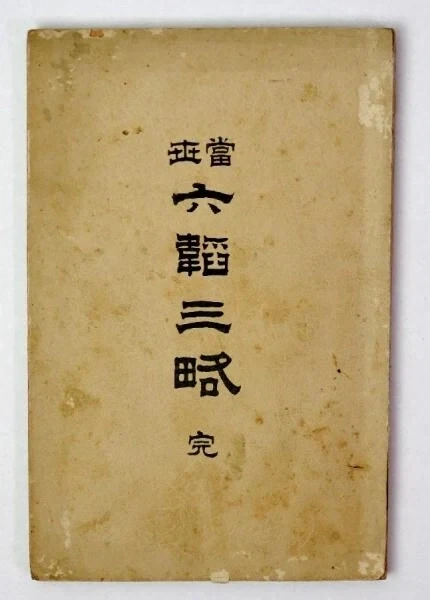 當世
六韜三略
完